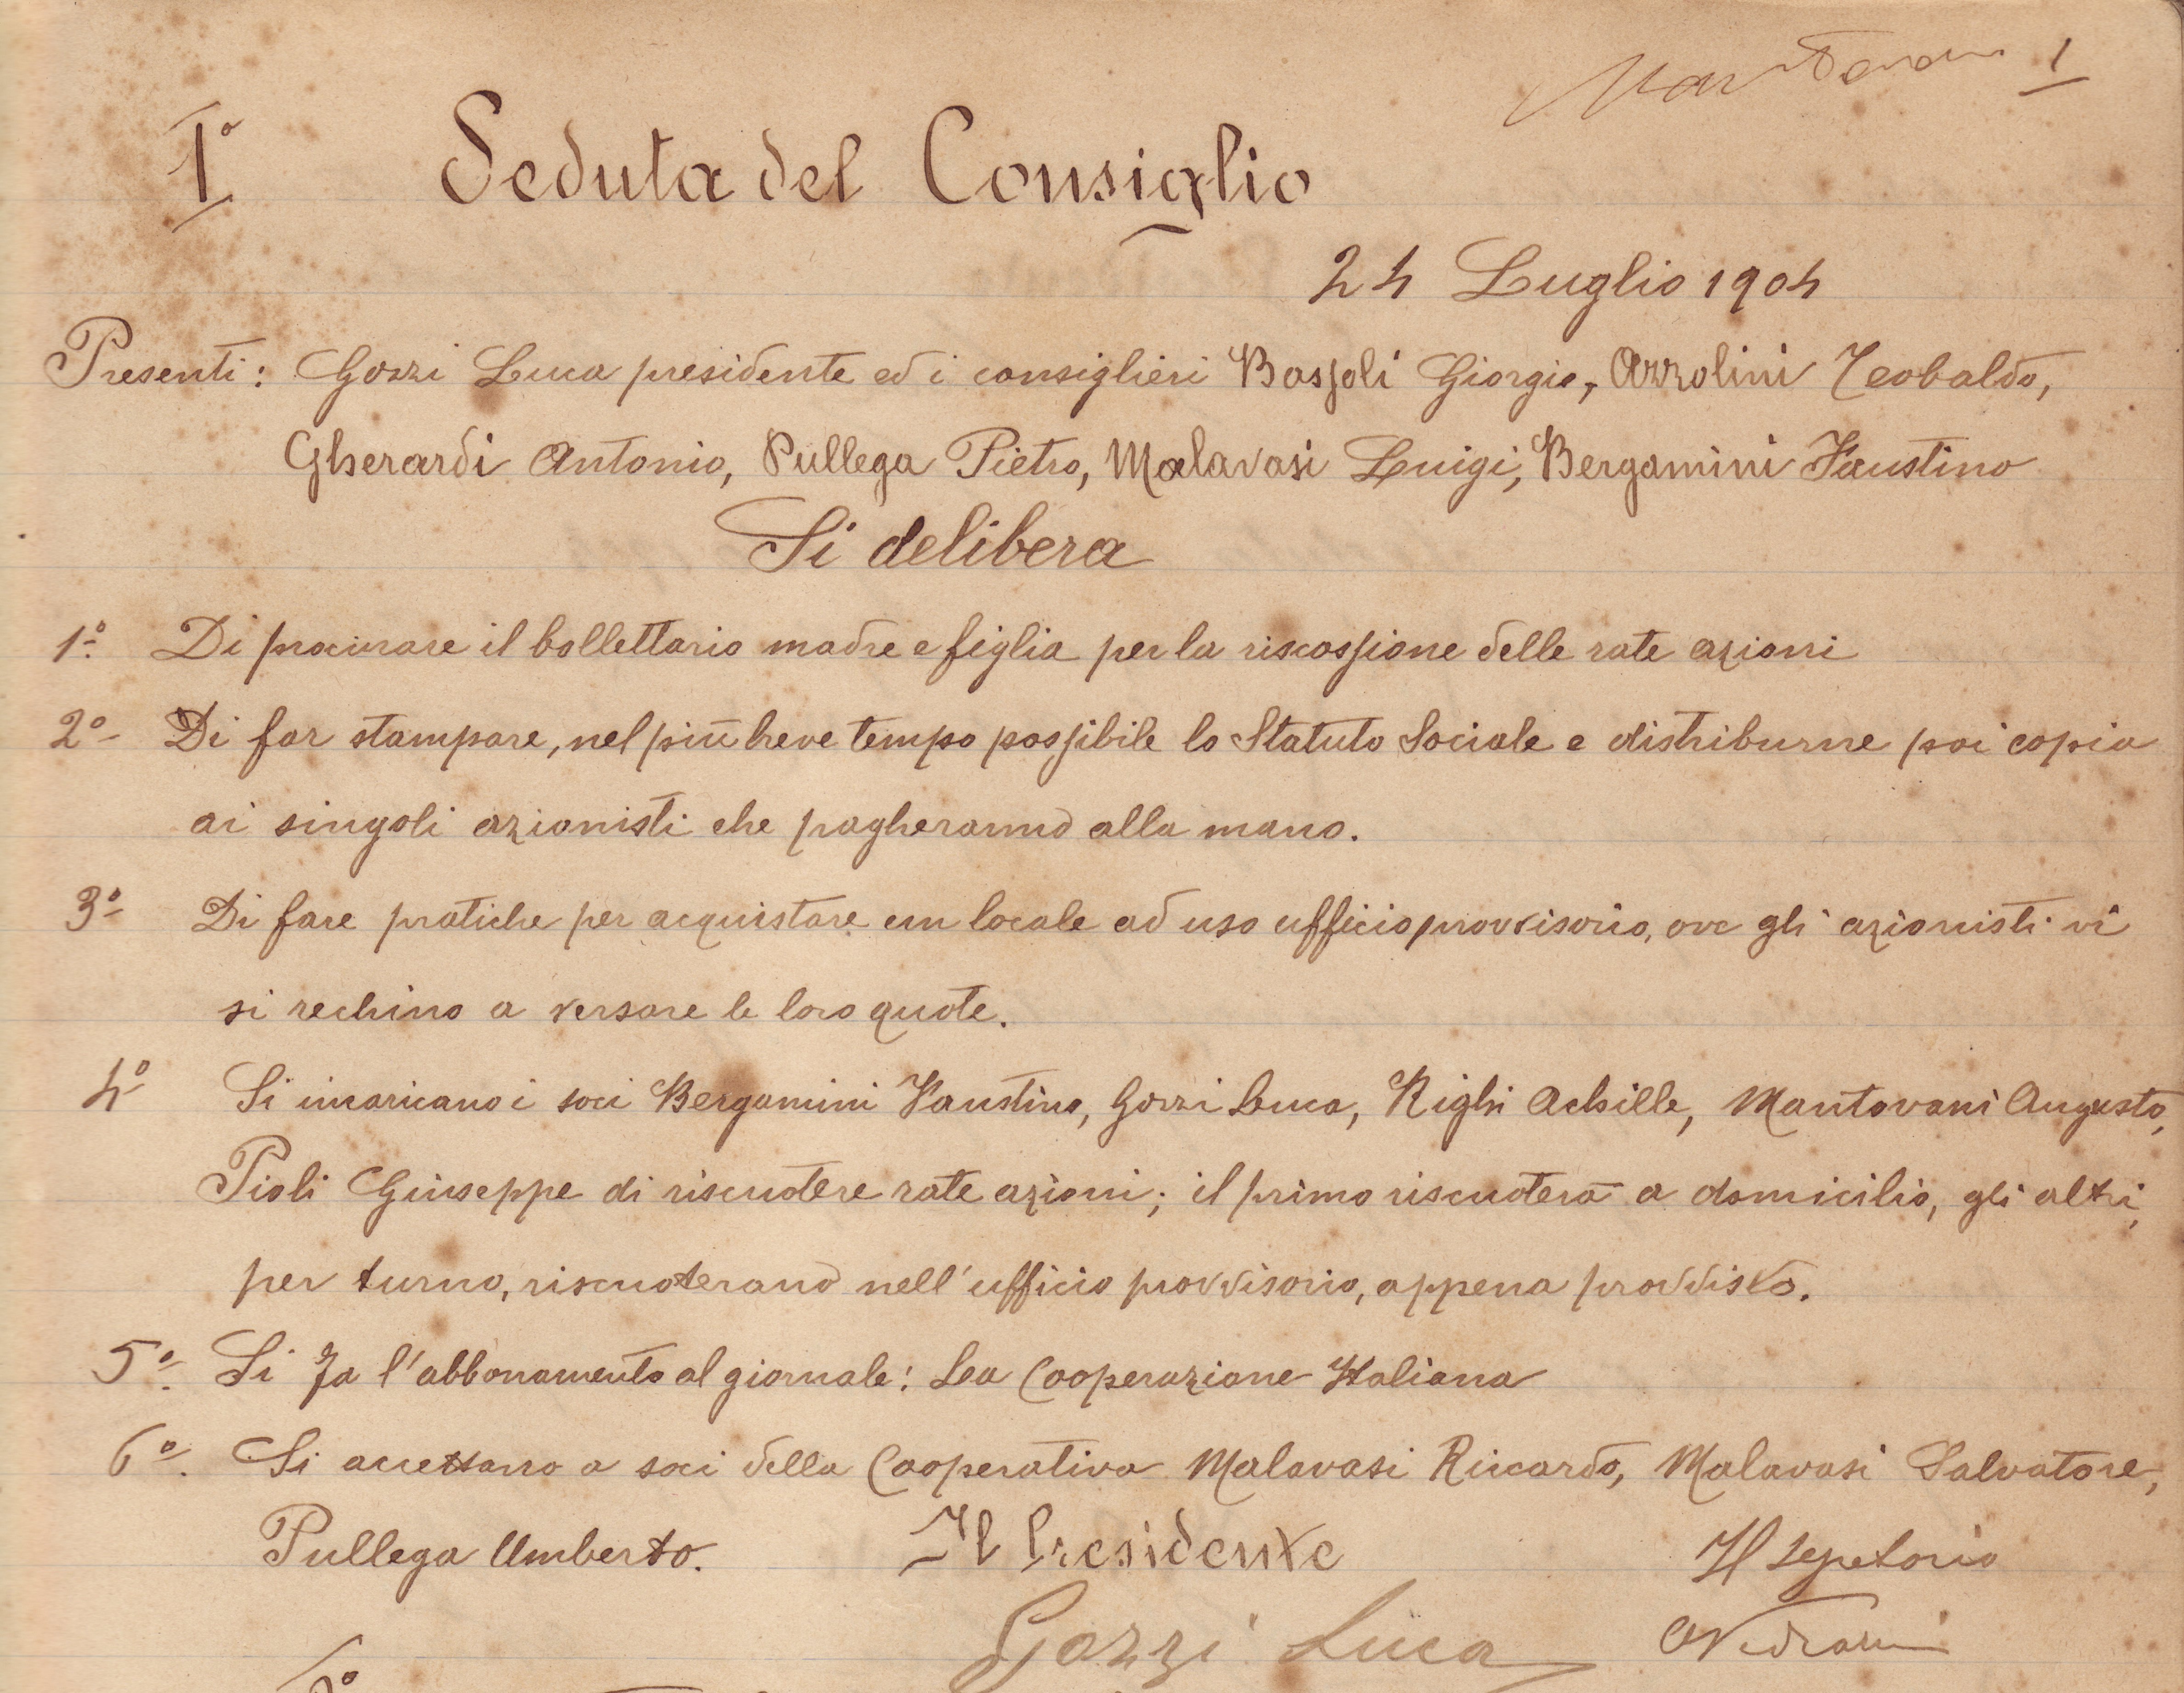 1
I° Seduta del Consiglio
24 Luglio 1904
Presenti: Gozzi Luca presidente ed i consiglieri Bassoli Giorgio, Azzolini Teobaldo,
Gherardi Antonio, Pullega Pietro, Malavasi Luigi, Bergamini Faustino
Si delibera
1° Di procurare il bollettario madre e figlia per la riscossione delle rate azioni
2° Di far stampare, nel più breve tempo possibile lo Statuto Sociale e distriburne poi copia
ai singoli azionisti che pagheranno alla mano.
3° Di fare pratiche per acquistare un locale ad uso ufficio provvisorio, ove gli azionisti vi
si rechino a versare le loro quote.
4° Si incaricano i soci Bergamini Faustino, Gozzi Luca, Righi Achille, Mantovani Augusto,
Pioli Giuseppe di riscuotere rate azioni; il primo riscuoterà a domicilio, gli altri,
per turno, riscuoterano nell'ufficio provvisorio, appena provvisto.
5° Si fa l'abbonamento al giornale: La Cooperazione Italiana
6° Si accettano a soci della Cooperativa Malavasi Riccardo, Malavasi Salvatore,
Pullega Umberto. Il Presidente Il Segretario
Gozzi Luca